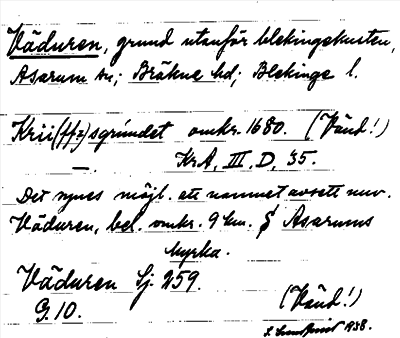 Väduren, grund utanför blekingekusten,
Asarum sn; Bräkne hd; Blekinge l.
Krii(ffz)sgrundet omkr. 1680. (Vänd!)
Kr.A, III, D, 35.
Det synes möjl. att namnet avsett nuv.
Väduren, bel. omkr. 9 km. S Asarums
kyrka.
Väduren Sj. 259.
G. 10. (Vänd!)
1938.